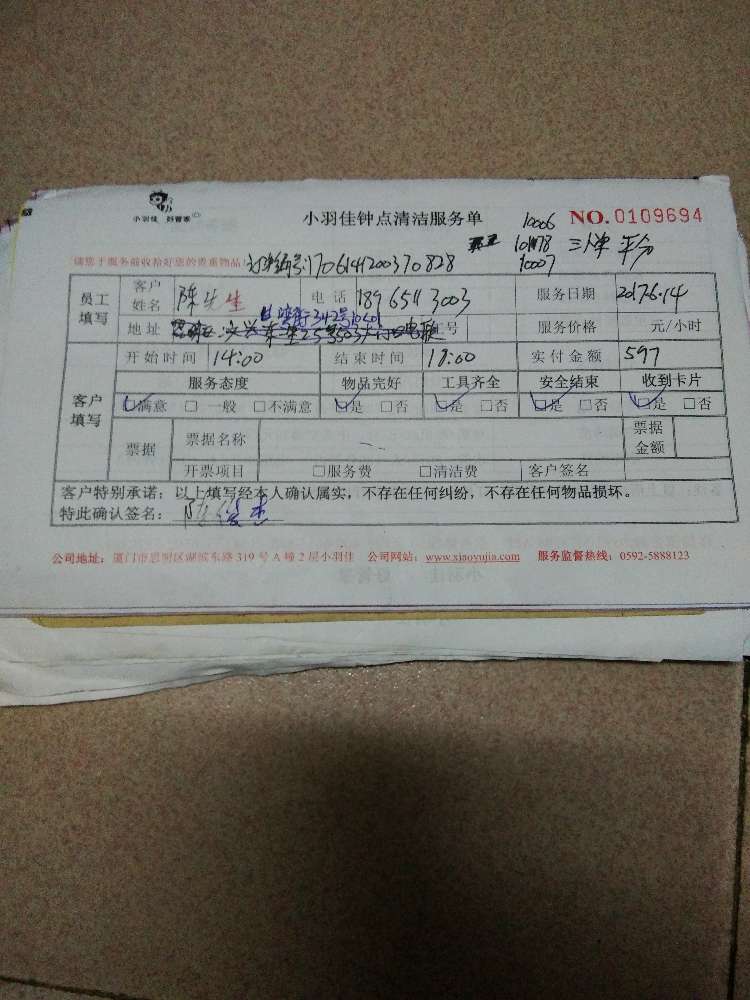 小羽佳 好管家
小羽佳钟点清洁服务单
10006
NO.0109694
10007
三人体 平分
请您于服务前收拾好您的贵重物品
订单编号:170614120037 0828
员工填写
客户姓名 陈先生 电话 189 6511 3003 服务日期 2017.6.14
地址 服务价格 元/小时
开始时间 14:00 结束时间 18:00 实付金额 597
客户填写
服务态度 物品完好 工具齐全 安全结束 收到卡片
☑满意 □一般 □不满意 ☑是 □否 ☑是 □否 ☑是 □否 ☑是 □否
票据 票据名称 票据金额
开票项目 □服务费 □清洁费 客户签名
客户特别承诺：以上填写经本人确认属实，不存在任何纠纷，不存在任何物品损坏。
特此确认签名：
公司地址：厦门市思明区湖滨东路 319 号 A 幢 2 层小羽佳 公司网站：www.xiaoyujia.com 服务监督热线：0592-5888123